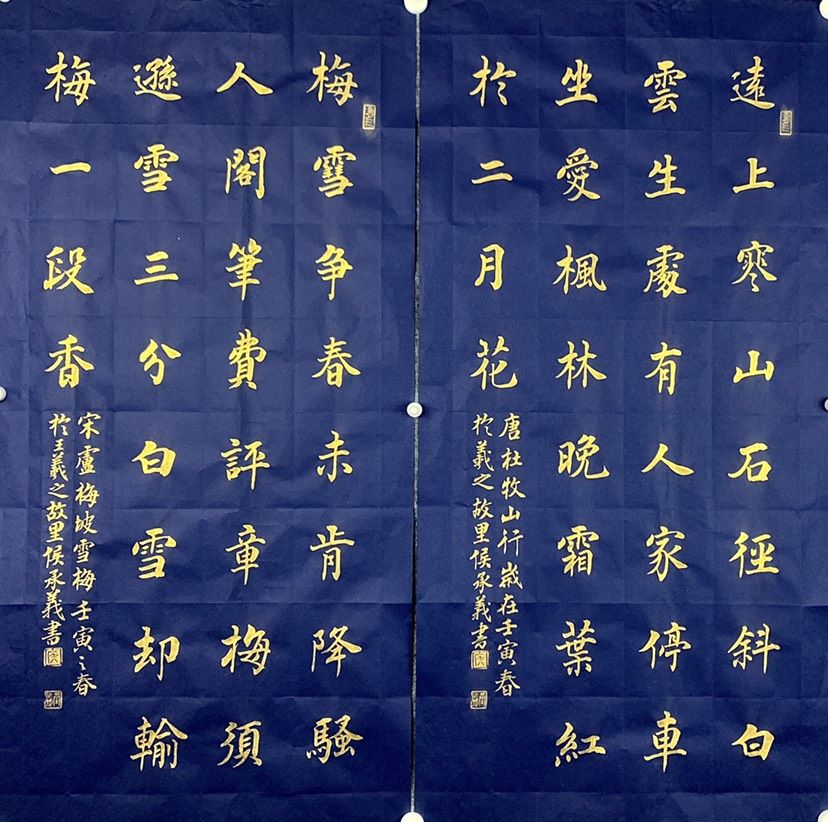 遠上寒山石徑斜白
雲生處有人家停車
坐愛楓林晚霜葉紅
於二月花
唐杜牧山行歲在壬寅春
於羲之故里侯承義書
梅雪争春未肯降騷
人閣筆費評章梅須
遜雪三分白雪却輸
梅一段香
宋盧梅坡雪梅壬寅之春
於王羲之故里侯承義書